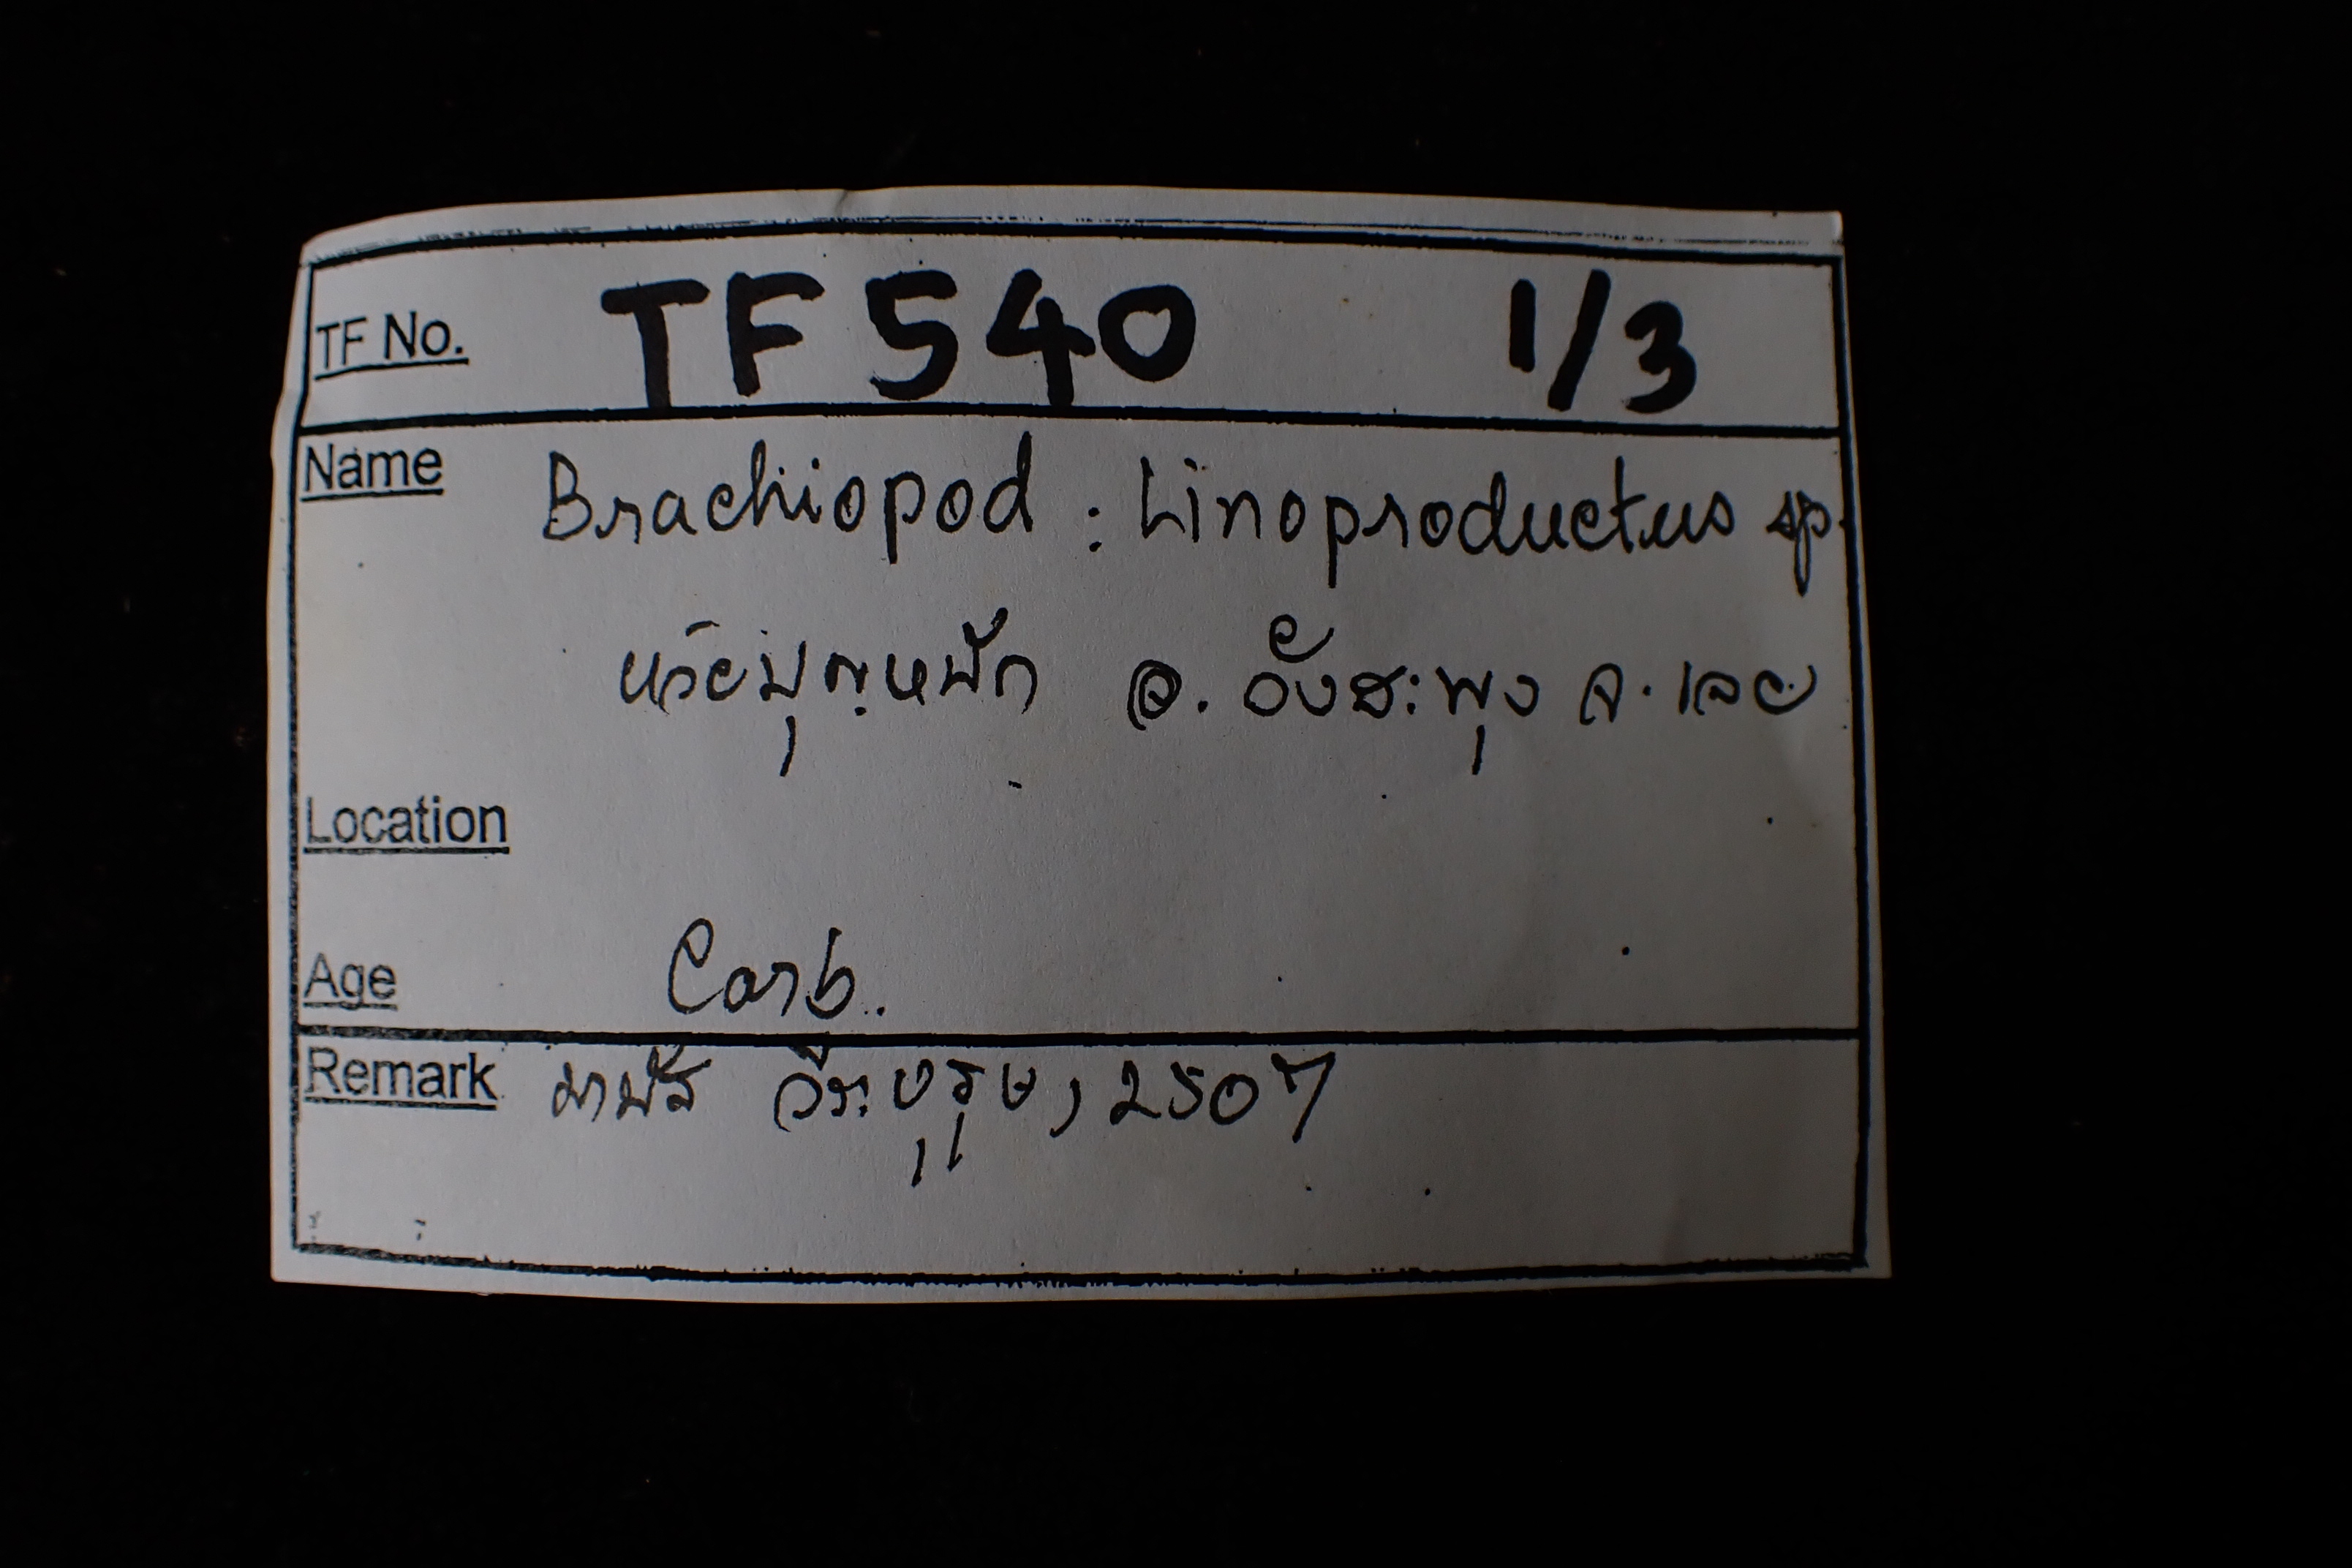 TF No. TF 540 1/3
Name Brachiopod : Linoproductus sp.
อ. วังสะพุง จ. เลย
Location
Age Carb.
Remark มานัส วีระบุรุษ, 2507